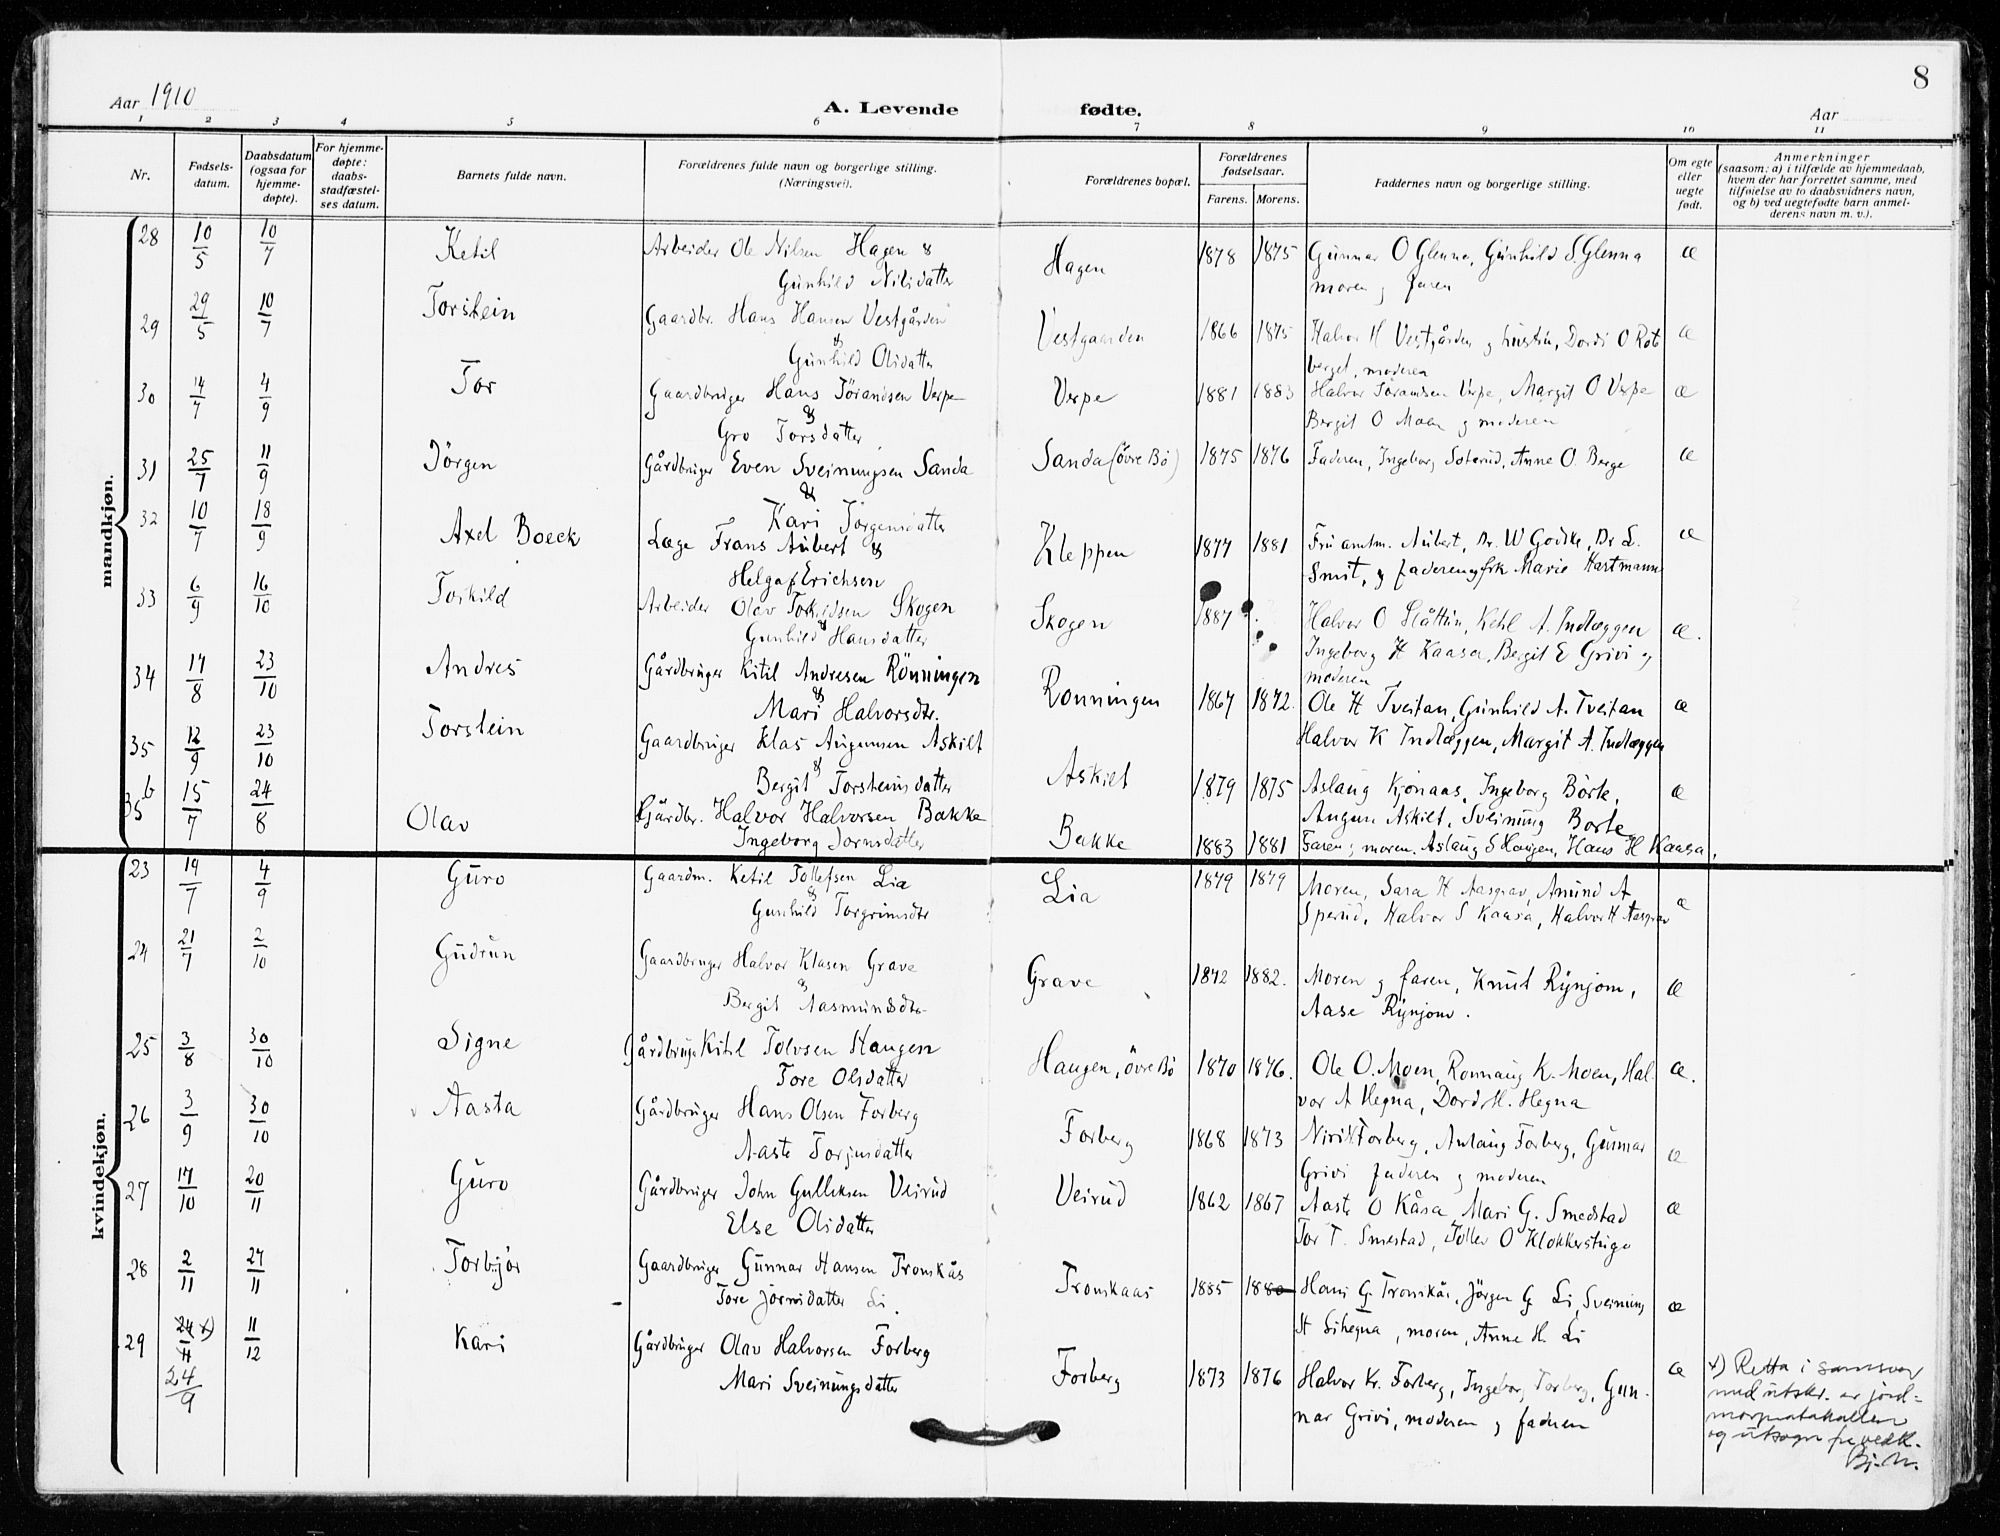 8
Aar 1910
A. Levende fødte.
Aar
1 2 3 4 5 6 7 8 9 10 11
Nr.
Fødsels-
datum.
Daabsdatum
(ogsaa for
hjemme-
døpte).
For hjemme-
døpte:
daabs-
stadfæstel-
ses datum.
Barnets fulde navn.
Forældrenes fulde navn og borgerlige stilling.
(Næringsvei).
Forældrenes bopæl.
Forældrenes
fødselsaar.
Farens. Morens.
Faddernes navn og borgerlige stilling.
Om egte
eller
uegte
født.
Anmerkninger
(saasom: a) i tilfælde av hjemmedaab,
hvem der har forrettet samme, med
tilføielse av to daabsvidners navn,
og b) ved uegtefødte barn anmel-
derens navn m. v.).
mandkjøn.
28 10/5 10/7 Ketil Arbeider Ole Nilsen Hagen & Hagen 1878 1875 Gunnar O Glenna, Gunhild S. Glenna æ
Gunhild Nilsdatter moren og faren
29 29/5 10/7 Torstein Gaardbr. Hans Hansen Vestgården Vestgaarden 1866 1875 Halvor H Vestgården og hustru, Dordi O Rot æ
& Gunhild Olsdatter berget, moderen
30 14/7 4/9 Tor Gaardbruger Hans Jörandsen Verpe Verpe 1881 1883 Halvor Jörandsen Verpe, Margit O Verpe æ
& Gro Torsdatter Bergit O Moen og moderen
31 25/7 11/9 Jörgen Gårdbruger Even Sveinungsen Sanda Sanda (övre Bö) 1875 1876 Faderen, Ingeborg Soterud, Anne O. Berge æ
& Kari Jörgensdatter
32 10/7 18/9 Axel Boeck Læge Frans Aubert & Kleppen 1877 1881 Fru amtm. Aubert, Dr. W Godtke, Dr L. æ
Helga f Erichsen Smit, og faderen og frk Marie Hartmann
33 6/9 16/10 Torkild Arbeider Olav Torkildsen Skogen Skogen 1887 Halvor O Slåttin, Ketil A. Indlæggen æ.
& Gunhild Hansdatter Ingeborg H Kaasa, Bergit E Grivi og
moderen
34 17/8 23/10 Andres Gårdbruger Kitil Andresen Rönningen Ronningen 1867 1872. Ole H Tveitan, Gunhild A. Tveitan æ
& Mari Halvorsdtr. Halvor K Indlæggen, Margit A. Indlæggen
35 12/9 23/10 Torstein Gaardbruger Klas Augunsen Askilt Askilt 1879 1875 Aslaug Kjonaas, Ingeborg Börte, æ
& Bergit Torsteinsdatter Augun Askilt, Sveinung Borte
35 b 15/7 24/8 Olav Gårdbr. Halvor Halvorsen Bakke Bakke 1883 1881 Faren og moren. Aslaug S Haugen, Hans H Kaasa.
Ingeborg Jornsdatter
kvindekjøn.
23 19/7 4/9 Guro Gaardm. Ketil Tollefsen Lia Lia 1879 1879 Moren, Sara H Aasgrav, Amund A æ
& Gunhild Torgrimsdtr Sperud, Halvor S Kaasa, Halvor H Aasgrav
24 21/7 2/10 Gudrun Gaardbruger Halvor Klasen Grave Grave 1872 1882. Moren og faren, Knut Rynjom, æ
& Bergit Aasmundsdtr Aase Rynjom.
25 3/8 30/10 Signe Gårdbrug. Kitil Tolvsen Haugen Haugen, övre Bö 1870 1876. Ole O. Moen, Ronnaug K. Moen, Hal- æ.
Tore Olsdatter vor A Hegna, Dordi H. Hegna
26 3/9 30/10 Aasta Gårdbruger Hans Olsen Forberg Forberg 1868 1873 Nirik Forberg, Anlaug Forberg, Gunnar æ
Aaste Torjusdatter Grivi faderen og moderen
27 17/10 20/11 Guro Gårdbruger John Gulleksen Veirud Veirud 1862 1867 Aaste O Kåsa, Mari G. Smedstad æ
Else Olsdatter Tor T. Smestad, Tollev O Klokkerstuga
28 2/11 27/11 Torbjör Gaardbruger Gunnar Hansen Tronskås Tronskaas 1885 1880 Hans G. Tronskås, Jörgen G Li, Sveinung æ
Tore Jörnsdatter Li. H Lihegna, moren, Anne H. Li
29 24/11 x) 11/12 Kari Gårdbruger Olav Halvorsen Forberg Forberg 1873 1876 Halvor Kr. Forberg, Ingeborg Forberg, Gun- æ
24/9 Mari Sveinungsdatter nar Grivi, moderen og faderen
x) Retta i samsvar
med utskr. av jord-
morprotokollen
og utsagn fra vedk.
Bj. N.